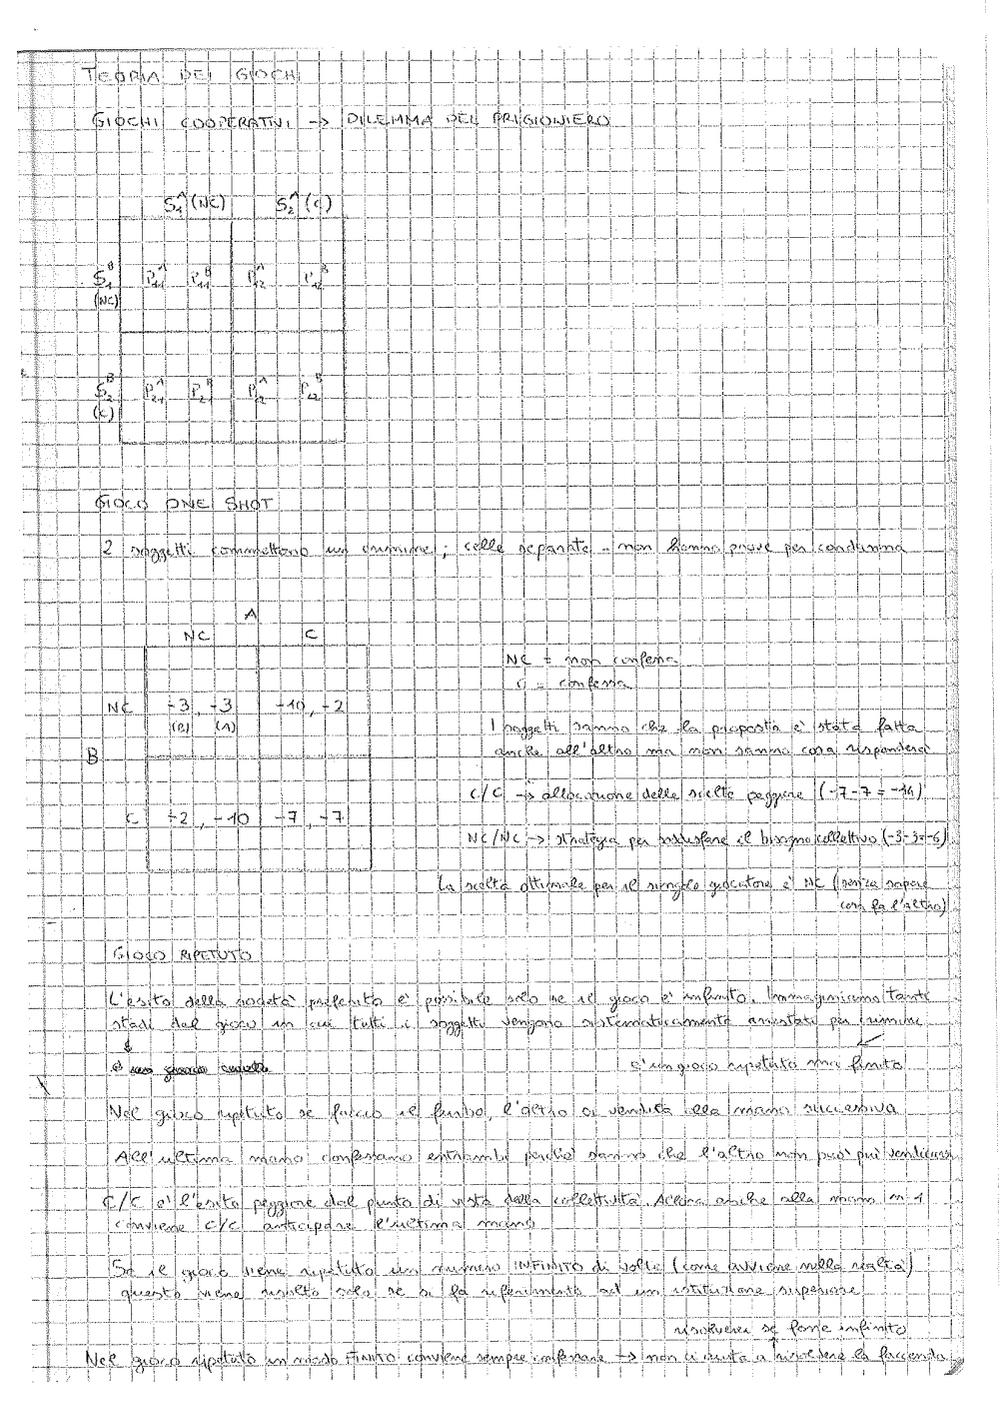 TEORIA DEI GIOCHI
GIOCHI COOPERATIVI -> DILEMMA DEL PRIGIONIERO
S₁ᴬ (NC) S₂ᴬ (C)
S₁ᴮ P₁₁ᴬ P₁₁ᴮ P₁₂ᴬ P₁₂ᴮ
(NC)
S₂ᴮ P₂₁ᴬ P₂₁ᴮ P₂₂ᴬ P₂₂ᴮ
(C)
GIOCO ONE SHOT
2 soggetti commettono un crimine; celle separate - non hanno prove per condanna
A
NC C
NC -3, -3 -10, -2
(B) (A)
B
C -2, -10 -7, -7
NC = non confessa
C = confessa
I soggetti sanno che la proposta è stata fatta
anche all'altro ma non sanno cosa risponderà
C/C -> allocazione delle scelte peggiore (-7-7 = -14)
NC/NC -> strategia per soddisfare il bisogno collettivo (-3-3=-6)
La scelta ottimale per il singolo giocatore è NC (senza sapere
cosa fa l'altro)
GIOCO RIPETUTO
L'esito della società preferito è possibile solo se il gioco è infinito. Immaginiamo tanti
stadi del gioco in cui tutti i soggetti vengono sistematicamente arrestati per crimine
è un gioco ripetuto ma finito
Nel gioco ripetuto se faccio il furbo, l'altro si vendica alla mano successiva
All'ultima mano confessano entrambi perché sanno che l'altro non può più vendicarsi
C/C è l'esito peggiore dal punto di vista della collettività. Allora anche alla mano n-1
conviene C/C anticipare l'ultima mano
Se il gioco viene ripetuto un numero INFINITO di volte (come avviene nella realtà)
questo viene risolto solo se si fa riferimento ad un istituzione superiore
se fosse infinito
Nel gioco ripetuto in modo FINITO conviene sempre confessare -> non ci aiuta a la faccenda